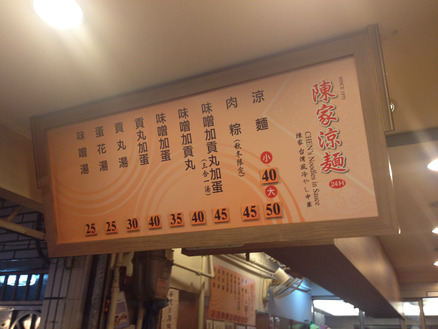 陳家涼麵
CHEN's Noodles in Sauce
陳家 台灣風冷やし中華
24H
涼麵 小 40 大 50
肉粽(秋冬限定) 45
味噌加貢丸加蛋(三合一湯) 45
味噌加貢丸 40
味噌加蛋 35
貢丸加蛋 40
貢丸湯 30
蛋花湯 25
味噌湯 25